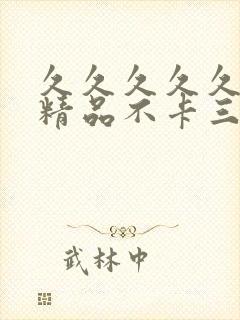 久久久久久
精品不卡三
武林中